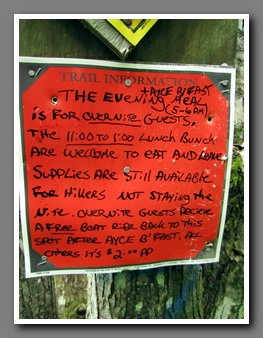 TRAIL INFORMATION
+ AYCE B'FAST
THE EVENING MEAL
(5-6PM)
IS FOR OVERNITE GUESTS.
THE 11:00 TO 1:00 LUNCH BUNCH
ARE WELCOME TO EAT AND LEAVE
SUPPLIES ARE STILL AVAILABLE
FOR HIKERS NOT STAYING THE
NITE. OVERNITE GUESTS RECIEVE
A FREE BOAT RIDE BACK TO THIS
SPOT AFTER AYCE B'FAST. ALL
OTHERS IT'S $2.00 PP